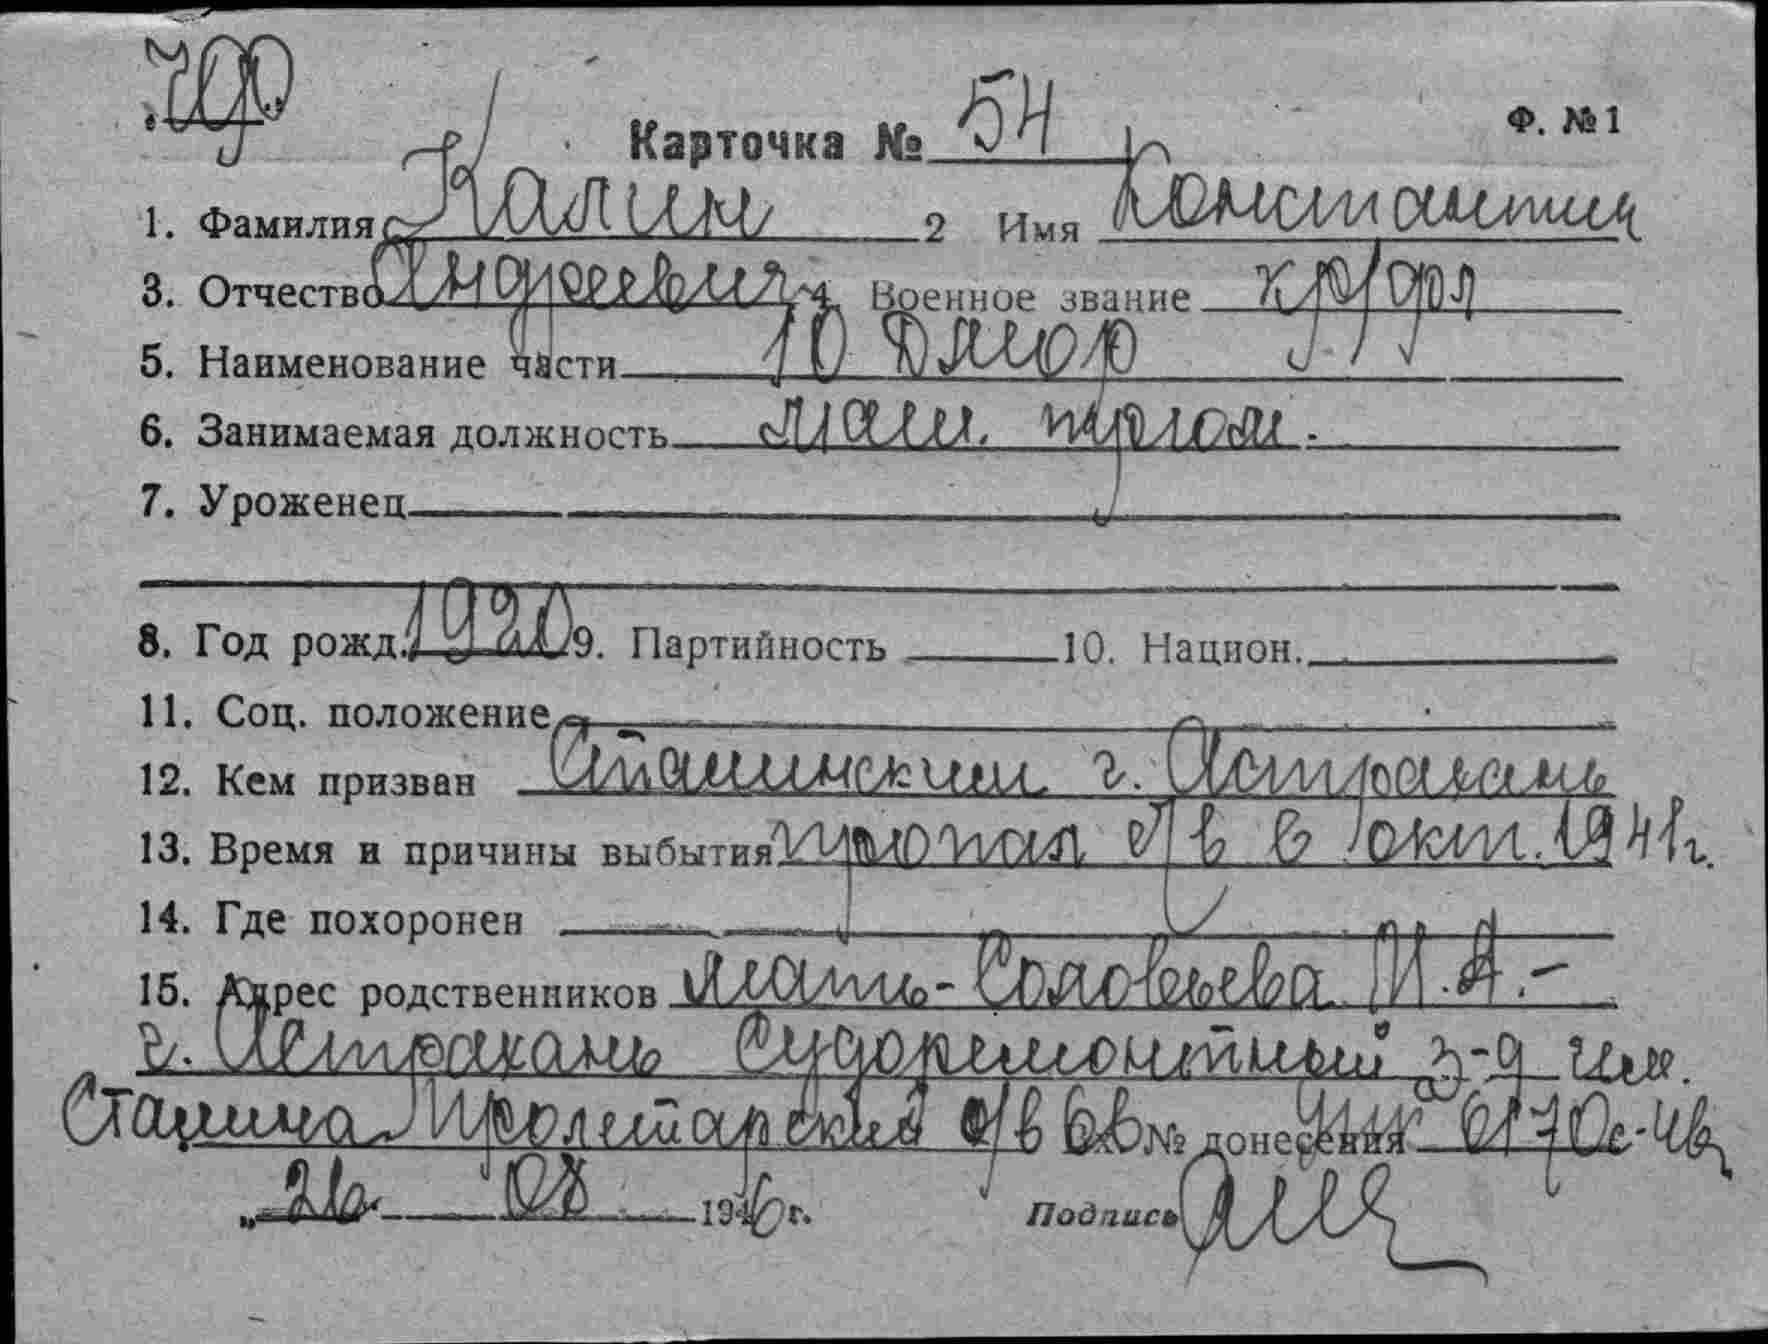 Карточка № 54 Ф. №1
1. Фамилия Калин 2 Имя Константин
3. Отчество Андреевич 4. Военное звание кр/фл
5. Наименование части 10
6. Занимаемая должность маш. трюм.
7. Уроженец
8. Год рожд. 1920 9. Партийность 10. Национ.
11. Соц. положение
12. Кем призван Сталинским г. Астрахань
13. Время и причины выбытия пропал б/в в окт. 1941г.
14. Где похоронен
15. Адрес родственников мать-Соловьева М.А.-
г. Астрахань Судоремонтный з-д им.
Сталина Пролетарский р/в № донесения
„26 08 1946 г. Подпись